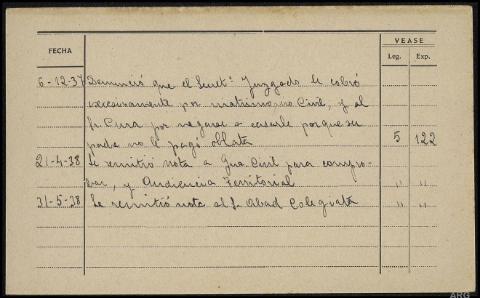 VEASE
FECHA Leg. Exp.
6-12-37 Denunció que el Secretº Juzgado le cobró
excesivamente por matrimonio Civil, y al
Sr. Cura por negarse a casarle porque su
padre no le pagó oblata 5 122
21-4-38 Se remitió nota a Gua. Civil para compro-
bar, y Audiencia Territorial " "
31-5-38 Se remitió nota al Sr. Abad Colegiata " "
ARG